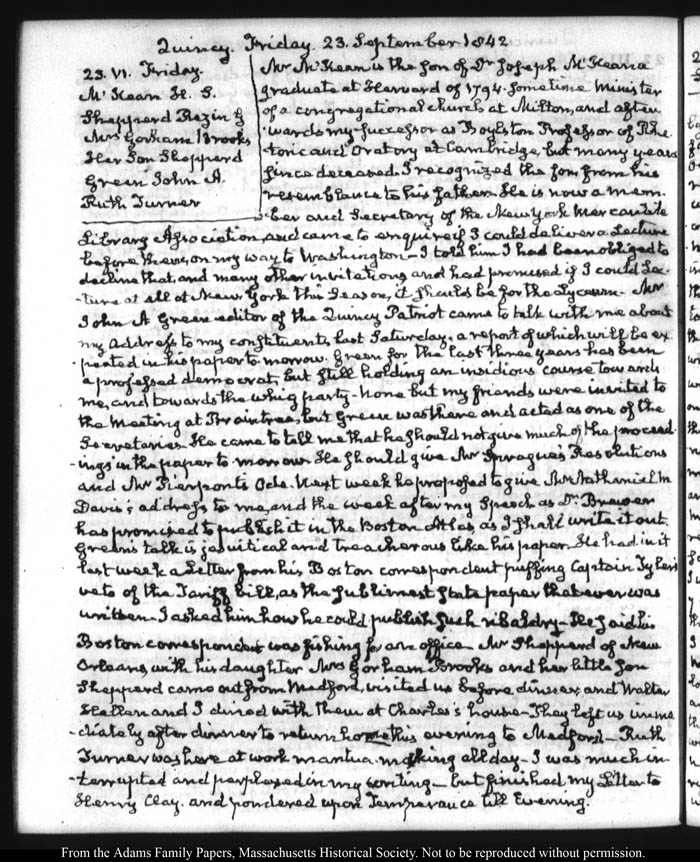 Quincy. Friday. 23. September 1842
23. VI. Friday.
McKean H. S.
Shepperd Rezin D
Mrs Gorham Brooks
Her Son Shepperd
Green John A.
Ruth Turner
Mr McKean is the Son of Dr Joseph McKean a
graduate at Harvard of 1794. Sometime Minister
of a congregational church at Milton, and after-
wards my Successor as Boylston Professor of Rhe-
toric and Oratory at Cambridge, but many years
since deceased. I recognized the Son from his
resemblance to his father. He is now a mem-
ber and Secretary of the New York Mercantile
Library Association, and came to enquire if I could deliver a Lecture
before them, on my way to Washington— I told him I had been obliged to
decline that, and many other invitations, and had promised if I could Lec-
ture at all at New York this Season, it should be for the Lyceum. Mr
John A Green editor of the Quincy Patriot came to talk with me about
my Address to my constituents, last Saturday. a report of which will be ex-
pected in his paper to-morrow. Green for the last three years has been
a professed democrat, but still holding an insidious course towards
me, and towards the whig party. None but my friends were invited to
the Meeting at Braintree, but Green was there and acted as one of the
Secretaries. He came to tell me that he should not give much of the proceed-
ings in the paper to morrow. He should give Mr Sprague's Resolutions
and Mr Pierpont's Ode. Next week he proposed to give Mr Nathaniel M
Davis's address to me, and the week after my Speech as Dr Brewer
has promised to publish it in the Boston Atlas, as I shall write it out.
Green's talk is jesuitical and treacherous like his paper. He had in it
last week a Letter from his Boston correspondent puffing Captain Tyler's
veto of the Tariff bill, as the sublimest State paper that ever was
written. I asked him how he could publish such ribaldry— He said his
Boston correspondent was fishing for an office. Mr Shepperd of New
Orleans, with his daughter Mrs Gorham Brooks and her little Son
Shepperd came out from Medford, visited us before dinner, and Walter
Hellen and I dined with them at Charles's house— They left us imme-
diately after dinner to return home this evening to Medford— Ruth
Turner was here at work mantua-making all day— I was much in-
terrupted and perplexed in my writing— but finished my Letter to
Henry Clay. and pondered upon Temperance till Evening.
From the Adams Family Papers, Massachusetts Historical Society. Not to be reproduced without permission.